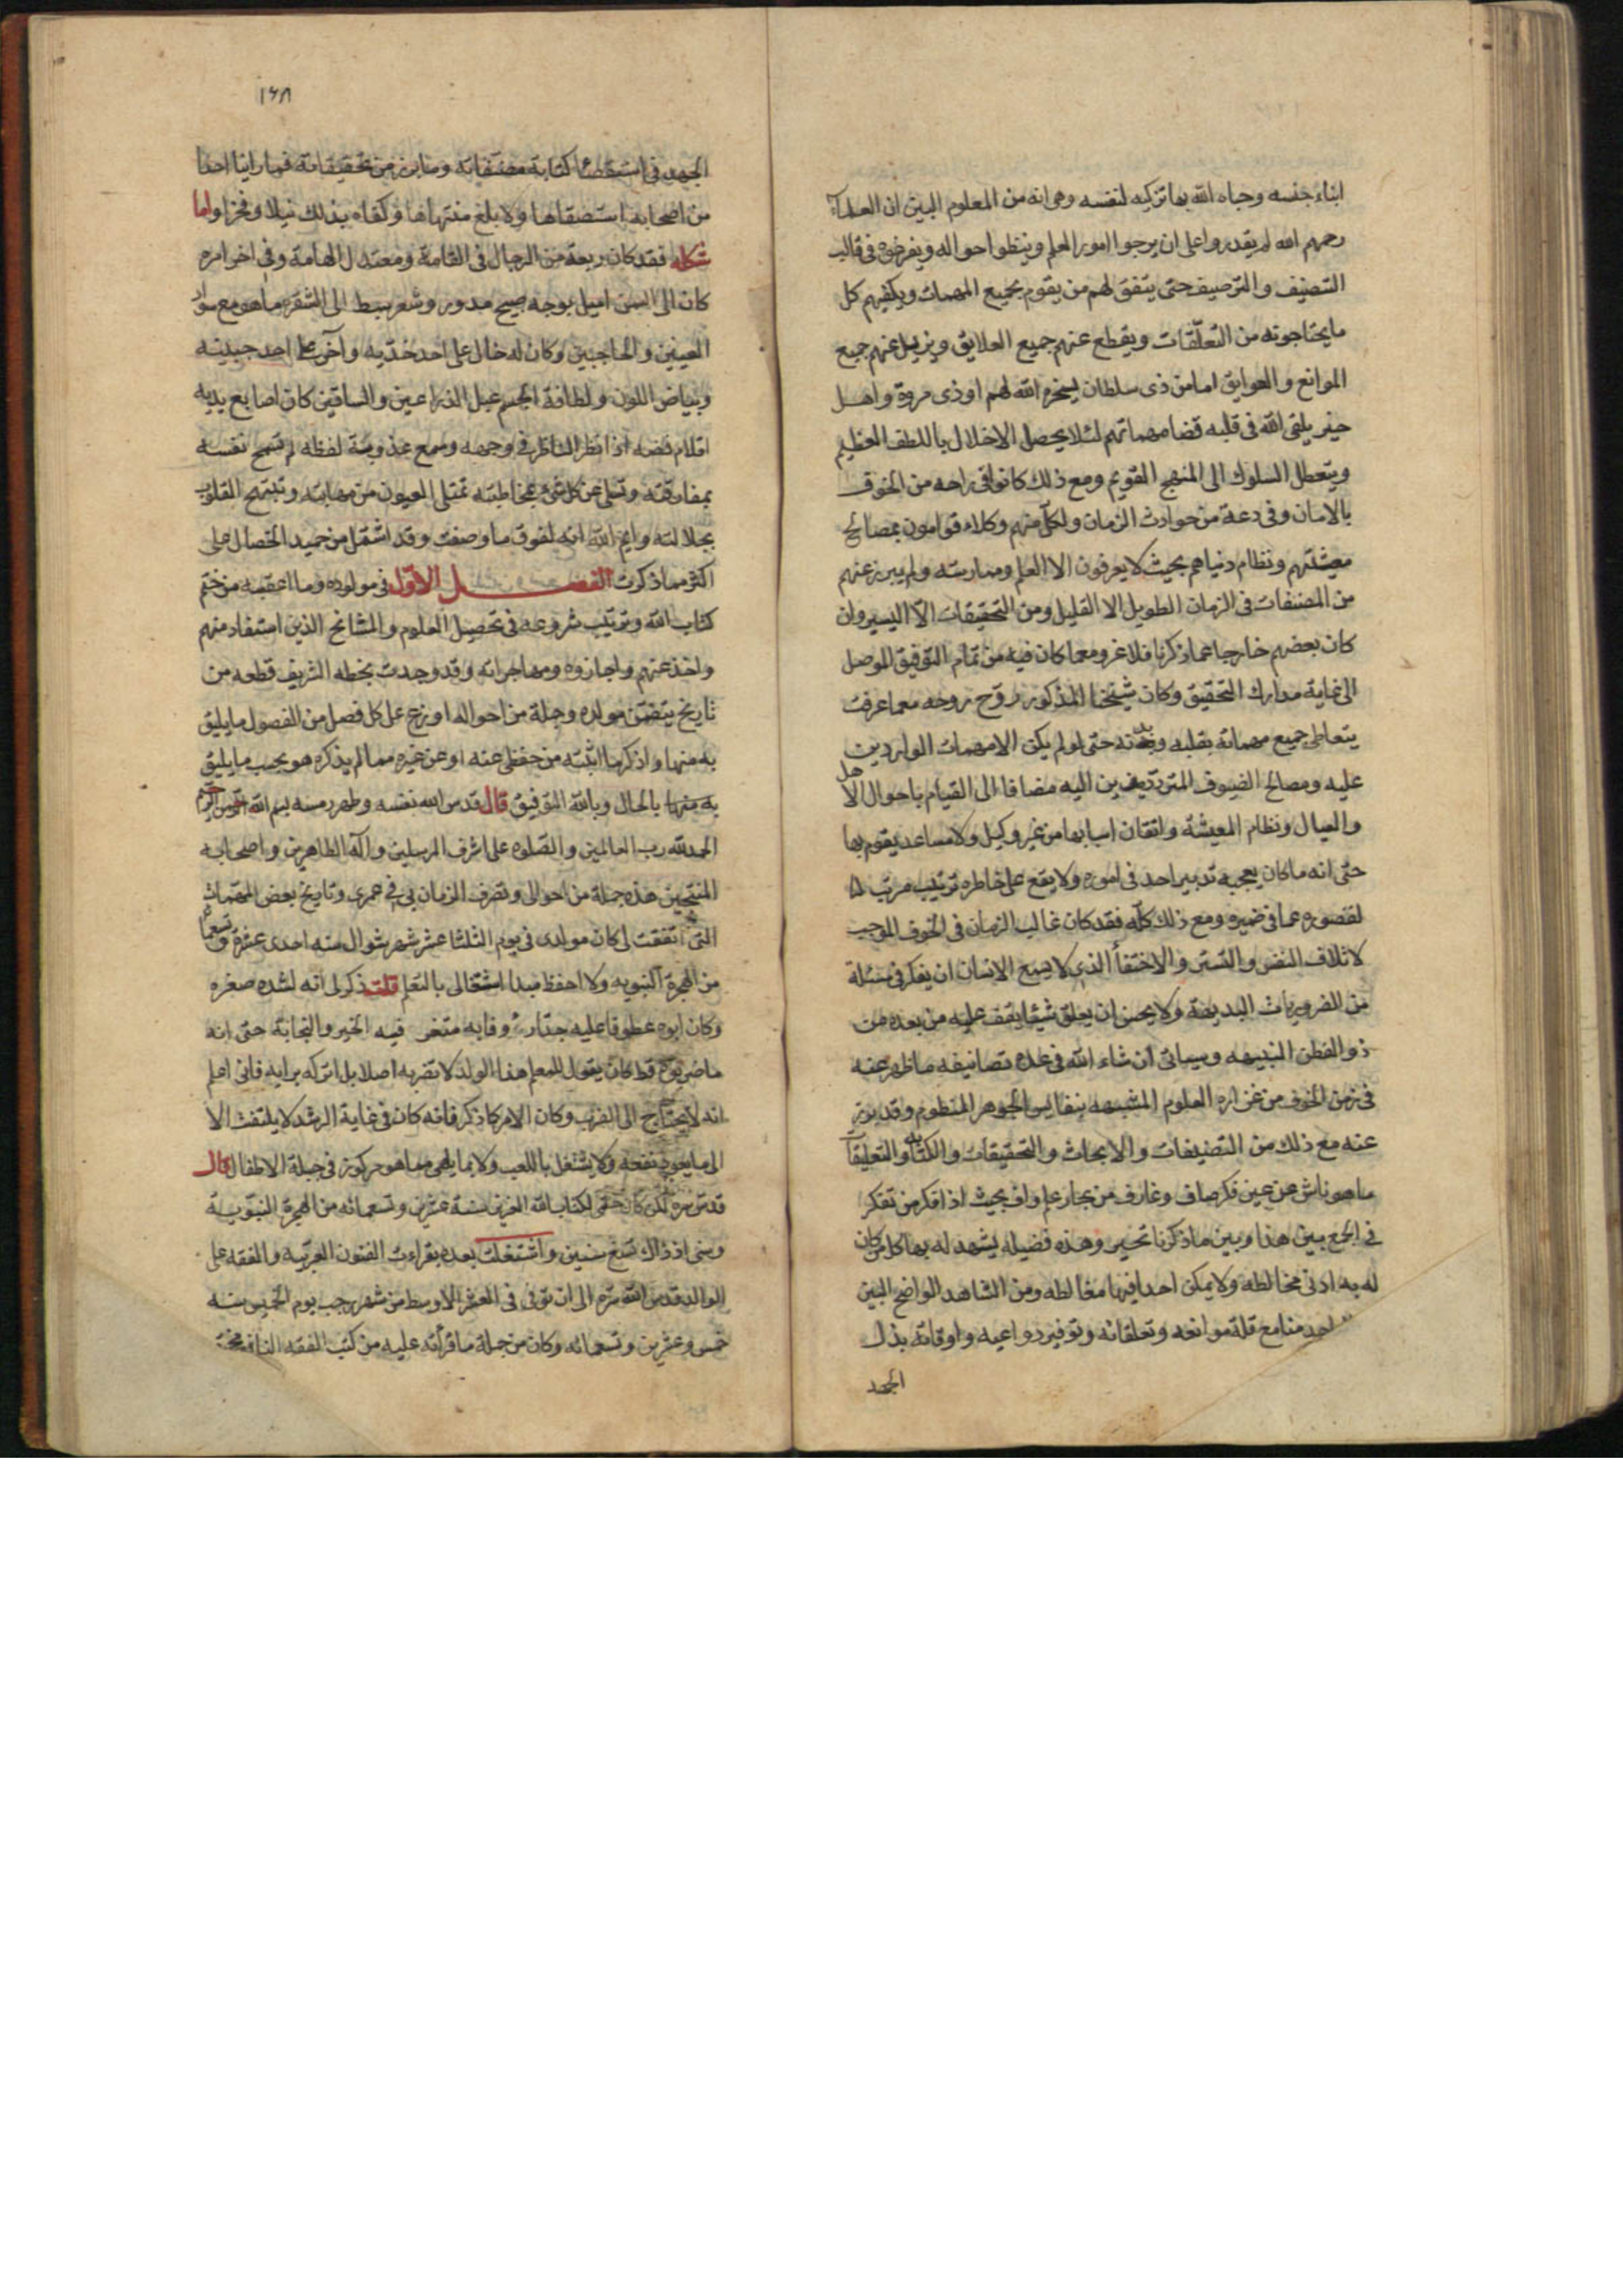 ابناء جنسه وحباه الله بها تزكيه لنفسه وهى انه من المعلوم البين ان العلماء
رحمهم الله لم يقدروا على ان يرجوا امور العلم وينظوا احواله ويفرغوه فى قالب
التصنيف والترصيف حتى يتفق لهم من يقوم بجميع المهمات ويكفيهم كل
ما يحتاجونه من التعلّقات ويقطع عنهم جميع العلايق ويزيل عنهم جميع
الموانع والعوايق اما من ذى سلطان يسخره الله لهم او ذى مروة واهل
خير يلقى الله فى قلبه قضا مهماتهم لئلا يحصل الاخلال باللطف العظيم
ويتعطل السلوك الى المنهج القويم ومع ذلك كانوا فى راحه من الخوف
بالامان وفى دعة من حوادث الزمان ولكل منهم وكلاء قوامون بمصالح
معيشتهم ونظام دنياهم بحيث لا يعرفون الا العلم وممارسته ولم يبرز عنهم
من المصنفات فى الزمان الطويل الا القليل ومن التحقيقات الّا اليسير وان
كان بعضهم خارجا عما ذكرنا فلا غرو مع ما كان فيه من تمام التوفيق الموصل
الى غاية مدارك التحقيق وكان شيخنا المذكور روّح روحه مع ما عرفت
يتعاطى جميع مهماته بقلبه وبدنه حتى لو لم يكن الا مهمات الواردين
عليه ومصالح الضيوف المترددين اليه مضافا الى القيام باحوال الاهل
والعيال ونظام المعيشة واتقان اسبابها من غير وكيل ولا مساعد يقوم بها
حتى انه ما كان يعجبه تدبير احد فى اموره ولا يقع على خاطره ترتيب مرتب لها
لقصوره عما فى ضميره ومع ذلك كلّه فقد كان غالب الزمان فى الخوف الموجب
لاتلاف النفس والتستر والاختفأ الذى لا يسع الانسان ان يفكر فى مسئلة
من الضروريات البديهة ولا يحسن ان يعلق شيئا يقف عليه من بعده من
ذو الفطن النبيهه وسياتى ان شاء الله فى عدة تصانيفه ما ظهر عنه
فى زمن الخوف من غزاره العلوم المشبهه بنفايس الجوهر المنظوم وقد برز
عنه مع ذلك من التصنيفات والابحاث والتحقيقات والكتابات والتعليقات
ما هو ناش عن عين فكر صاف وغارف من بحار علم واف بحيث اذا فكر من تفكر
فى الجمع بين هذا وبين ما ذكرنا تحير وهذه فضيله يشهد له بها كل من كان
له به ادنى مخالطه ولا يمكن احدا فيها مغالطه ومن الشاهد الواضح البين
احد منا مع قلة موانعه وتعلقاته وتوفير دواعيه واوقاته بذل
الجهد
١٦٨
الجهد فى استقصاء كتابة مصنفاته وما برز من تحقيقاته فما راينا احدا
من اصحابه استقصاها ولا بلغ منتهاها وكفاه بذلك نيلا وفخرا واما
شكله فقد كان ربعة من الرجال فى القامة ومعتدل الهامة وفى اخر امره
كان الى السمن اميل بوجه صبيح مدور وشعر سبط الى الشقره ما هو مع سواد
العينين والحاجبين وكان له خال على احد خدّيه وآخر على احد جبينه
وبياض اللون ولطافة الجسم عبل الذراعين والساقين كان اصابع يديه
اقلام فضه اذا نظر الناظر فى وجهه وسمع عذوبة لفظه لم تسمح نفسه
بمفارقته وتسلى عن كل شىء بمخاطبته تمتلى العيون من مهابته وتبتهج القلوب
بجلالته وايم الله انه لفوق ما وصفت وقد اشتمل من حميد الخصال على
اكثر مما ذكرت الفصل الاول فى مولوده وما اعقبه من ختم
كتاب الله وترتيب شروعه فى تحصيل العلوم والمشائخ الذين استفاد منهم
واخذ عنهم واجازوه ومهاجراته وقد وجدت بخطه الشريف قطعه من
تاريخ يتضمن مولده وجملة من احواله اوزع على كل فصل من الفصول ما يليق
به منها واذكر ما اثبته من حفظى عنه او عن غيره مما لم يذكره هو بحسب ما يليق
به منها بالحال وبالله التوفيق قال قدس الله نفسه وطهر رمسه بسم الله الرحمن الرحيم
الحمد لله رب العالمين والصّلوه على اشرف المرسلين وآله الطاهرين واصحابه
المنتجبين هذه جملة من احوالى وتصرف الزمان بى فى عمرى وتاريخ بعض المهمات
التى اتفقت لى كان مولدى فى يوم الثلثا عشر شهر شوال سنه احدى عشرة وتسعمائه
من الهجرة النبويه ولا احفظ مبدا اشتغالى بالتعلم قلت ذكر لى انه لشده صغره
وكان ابوه عطوفا عليه جدّا رءوفا به متخر فيه الخير والنجابة حتى انه
ما ضربوه قط كان يقول للمعلم هذا الولد لا تضربه اصلا بل اتركه برايه فانى اعلم
انه لا يحتاج الى الضرب وكان الامر كما ذكر فانه كان فى غاية الرشد لا يلتفت الا
الى ما يعود نفعه ولا يشتغل باللعب ولا بما يلهى مما هو مركوز فى جبلة الاطفال قال
قدس سره لكن كان ختمى لكتاب الله العزيز سنة عشرين وتسعمائه من الهجرة النبوية
وسنى اذ ذاك تسع سنين واشتغلت بعده بقراءت الفنون العربيه والفقه على
الوالد قدس الله سره الى ان توفى فى العشر الاوسط من شهر رجب يوم الخميس سنه
خمس وعشرين وتسعمائه وكان من جملة ما قرأته عليه من كتب الفقه النافع مختصر